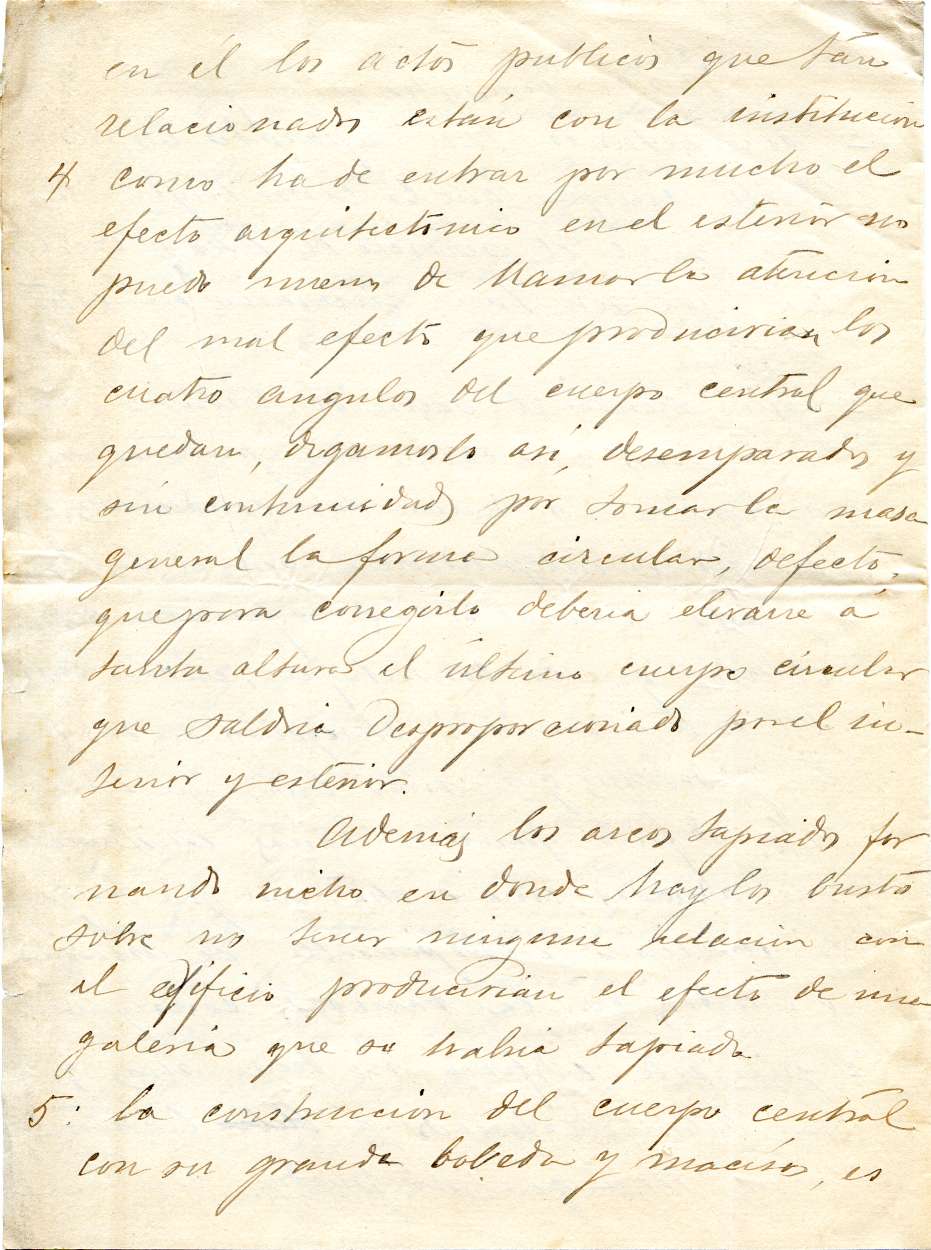 en él los actos publicos que tán
relacionados están con la institución
4 como ha de entrar por mucho el
efecto arquitectónico en el esterior no
puedo menos de llamar la atención
del mal efecto que producirian los
cuatro angulos del cuerpo central que
quedan, digamoslo así, desemparados y
sin continuidad por tomar la masa
general la forma circular, defecto,
que para corregirlo deberia elevarse á
tanta altura el último cuerpo circular
que saldria desproporcionado por el in-
terior y esterior.
Además los arcos tapiados for
mando nicho en donde hay los bustos
sobre no tener ninguna relación con
el edificio producirian el efecto de una
galeria que se habia tapiado
5: la construccion del cuerpo central
con su grande bobeda y macisos, es